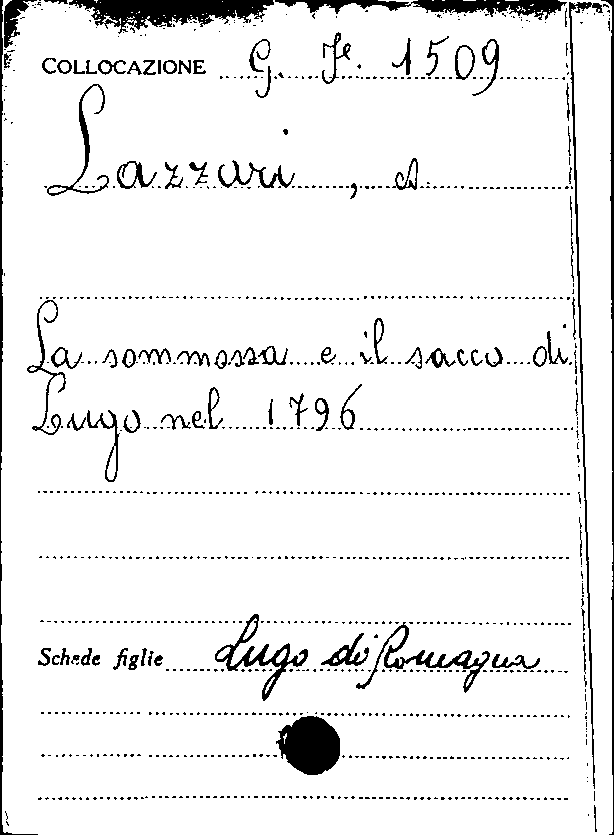 COLLOCAZIONE G. Fe. 1509
Lazzari, A.
La sommossa e il sacco di
Lugo nel 1796
Schede figlie Lugo di Romagna